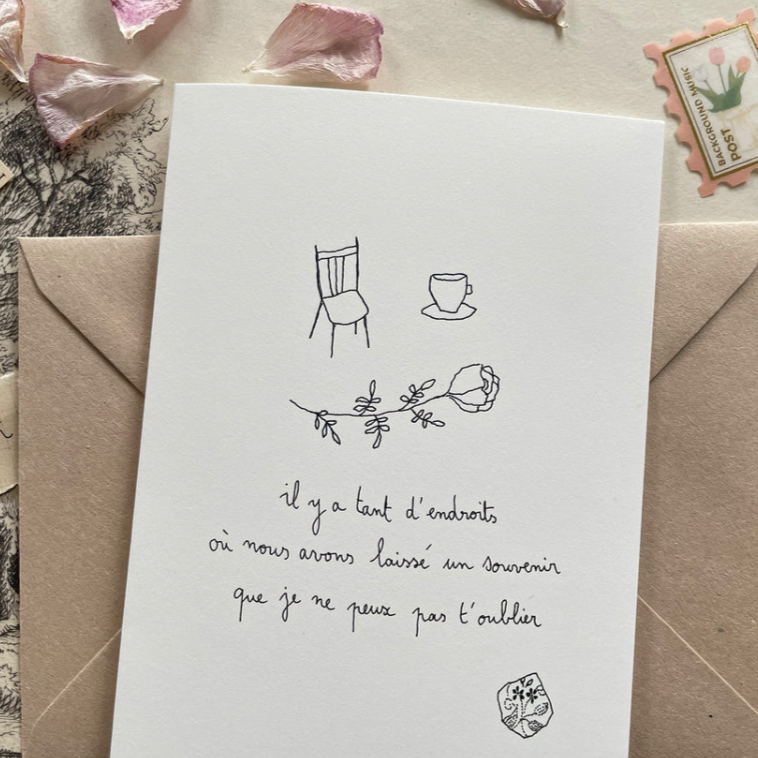 BACKGROUND MUSIC
POST
il y a tant d'endroits
où nous avons laissé un souvenir
que je ne peux pas t'oublier